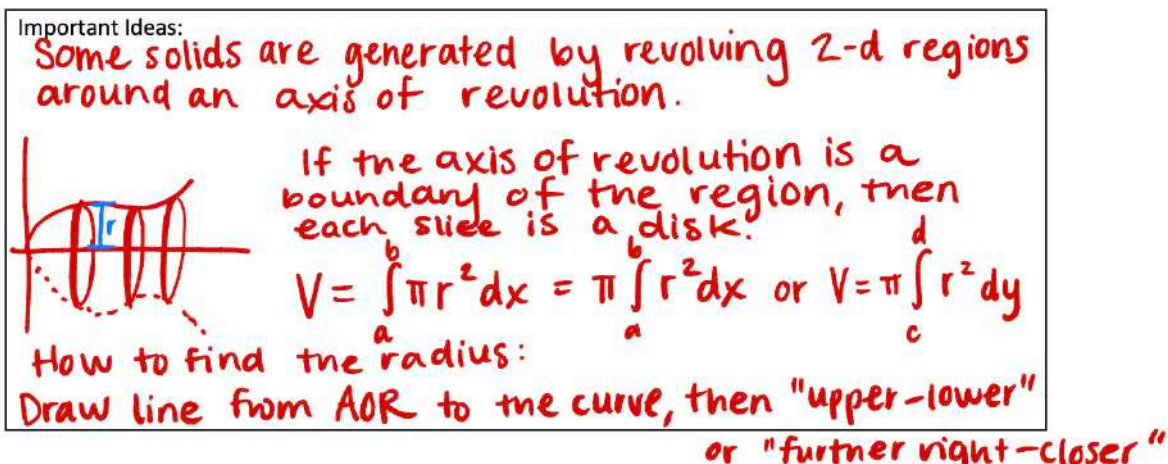 Important Ideas:
Some solids are generated by revolving 2-d regions
around an axis of revolution.
If the axis of revolution is a
boundary of the region, then
each slice is a disk.
r
V = ∫_a^b πr² dx = π ∫_a^b r² dx or V = π ∫_c^d r² dy
How to find the radius:
Draw line from AOR to the curve, then "upper-lower"
or "further right-closer"